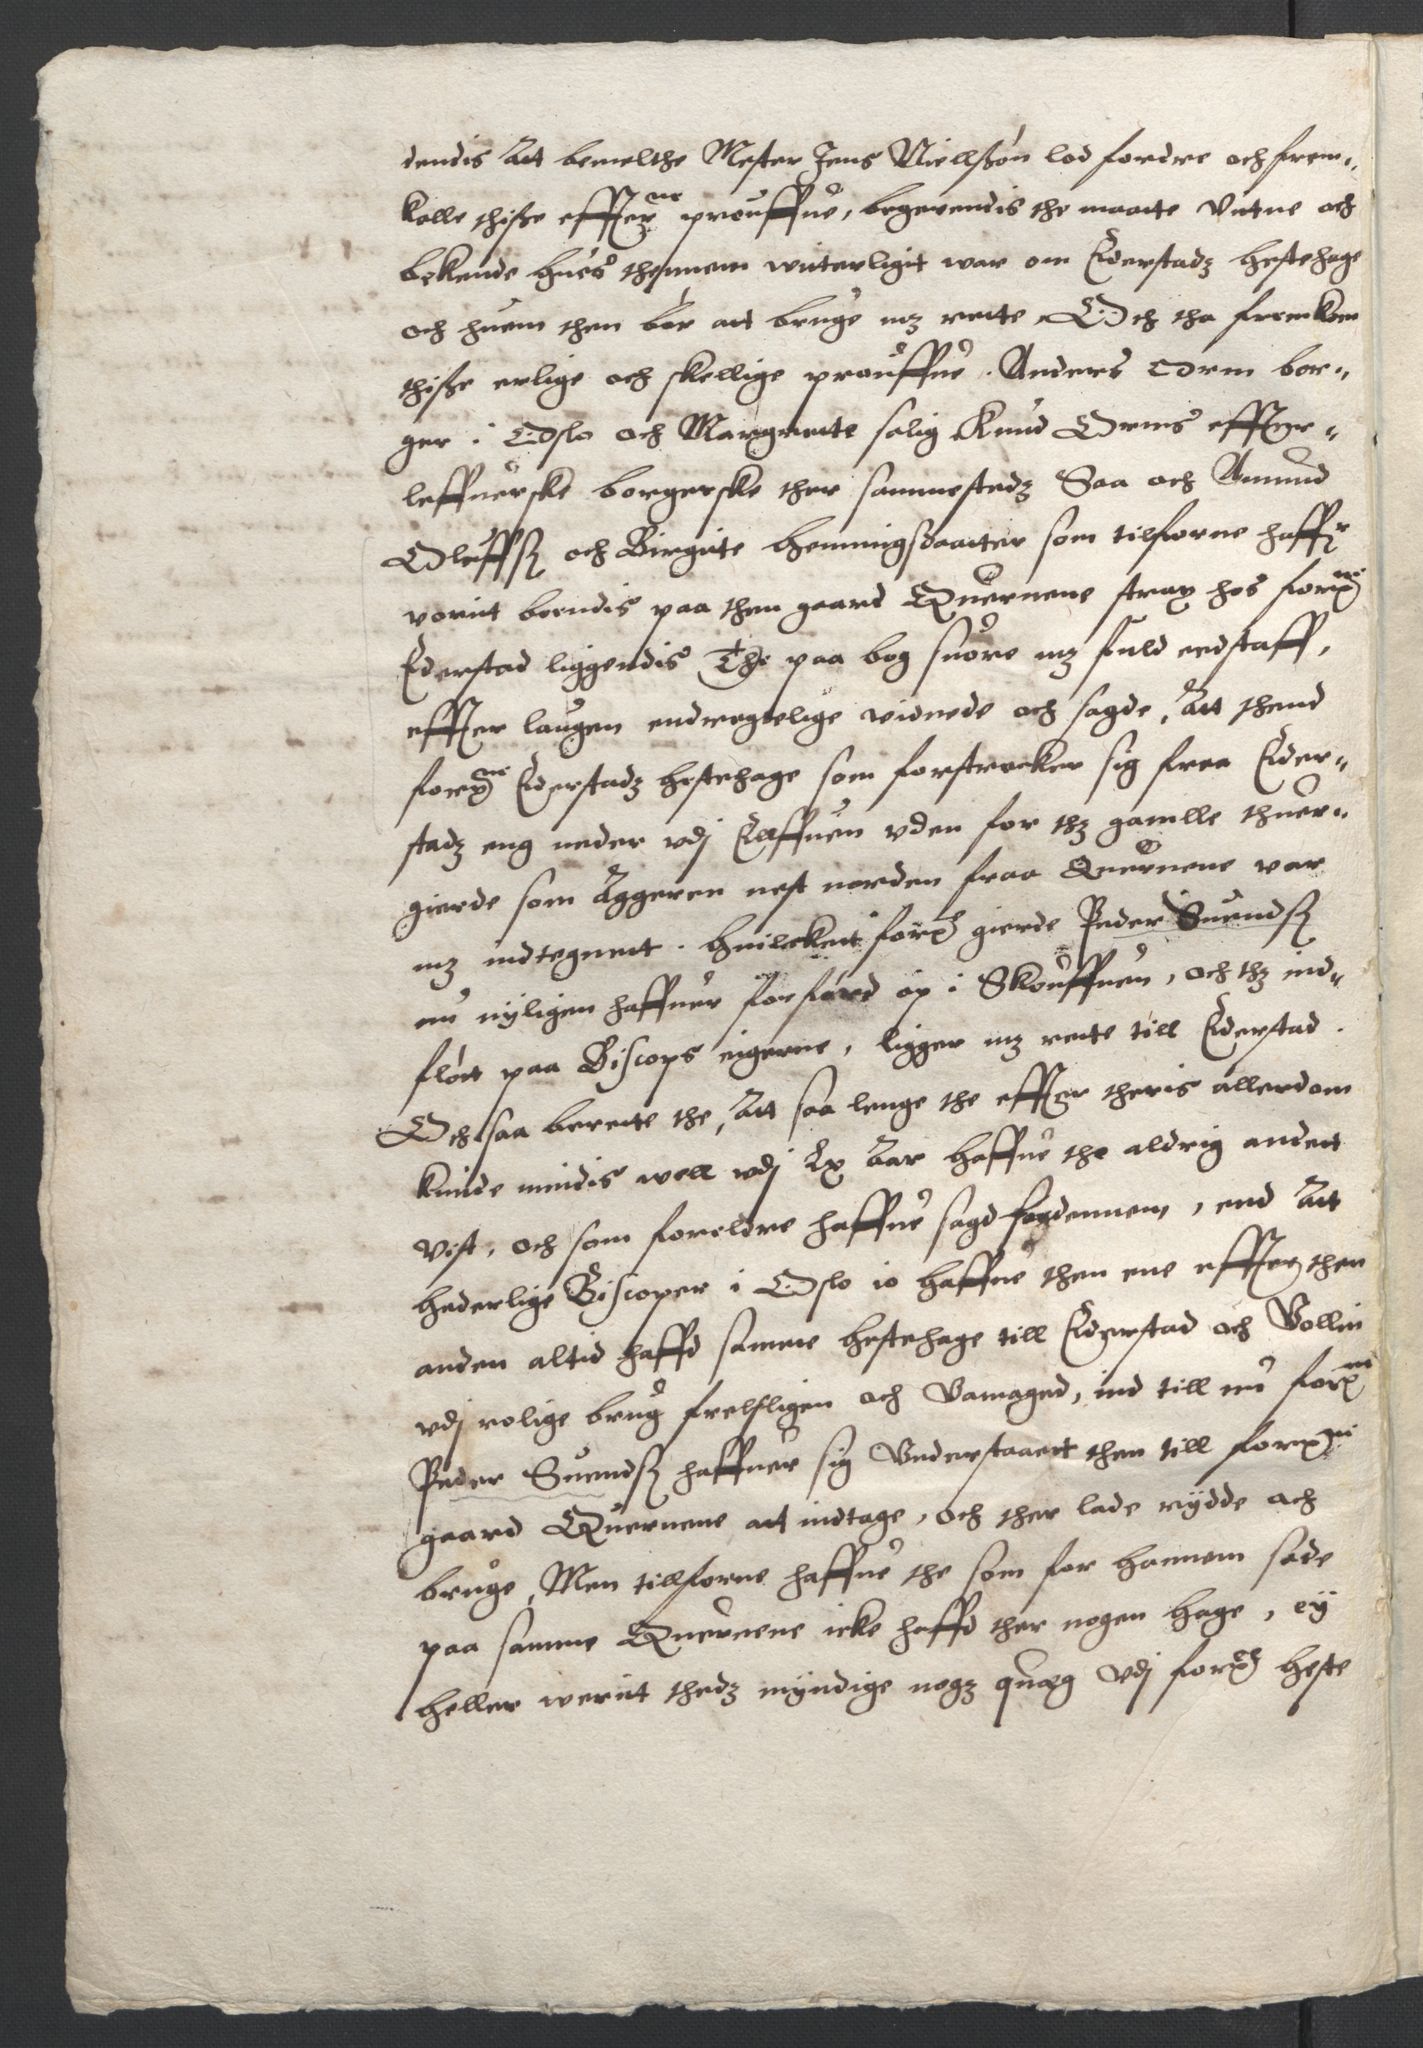 dendis Att bemelthe Mester Jens Niellßøn lod fordre och frem-
kalle thiße effterne prouffue, begerendis the maatte vntne och
bekende hues thennem witterligit war om Ederstadz hestehage
och huem then bør att bruge mz rette. Och tha fremkom
thiße erlige och skellige prouffue. Anders Orm bor-
ger i Oslo och Margrette salig Knud Orms effter-
leffuerske borgerske ther sammestedz Saa och Amund
Oluffß och Birgitte Hemmingsdaatter som tilforne haffr
verrit boendis paa then gaard Quernene strax hos forne
Ederstad liggendis The paa bog suore mz fuld eedstaff,
effter laugen endregtelige vidnede och sagde, Att thend
forne Ederstadz hestehage som forstrecker sig fraa Eder-
stadz eng neder vdj Elffuen vden for thz gamlle thuer-
gierde som Aggeren nest norden fraa Quernene var
mz indtegnett. Huilckett forne gierde Peder Suendß
nu nyligen haffuer forførd op i Skouffuen, och thz ind-
fløtt paa Biscops eigerne, ligger mz rette till Ederstad.
Och saa berette the, Att saa lenge the effter theris allerdom
kunde mindis well vdj Lx Aar haffue the aldrig andett
vist, och som foreldre haffue sagd for dennem, end Att
hederlige Biscoper i Oslo io haffue then ene effter then
anden altid haffd samme hestehage till Ederstad och Vollin
vdj rolige brug frelsligen och Vamaged, ind till nu forne
Peder Suendß haffuer sig Vnderstaaett then till forne
gaard Quernene att indtage, och ther lade rydde och
bruge, Men tillforne haffue the som for hannem sade
paa samme Quernene icke haffd ther nogen hage, ey
heller werit thedz myndige nogz quæg vdj forne heste